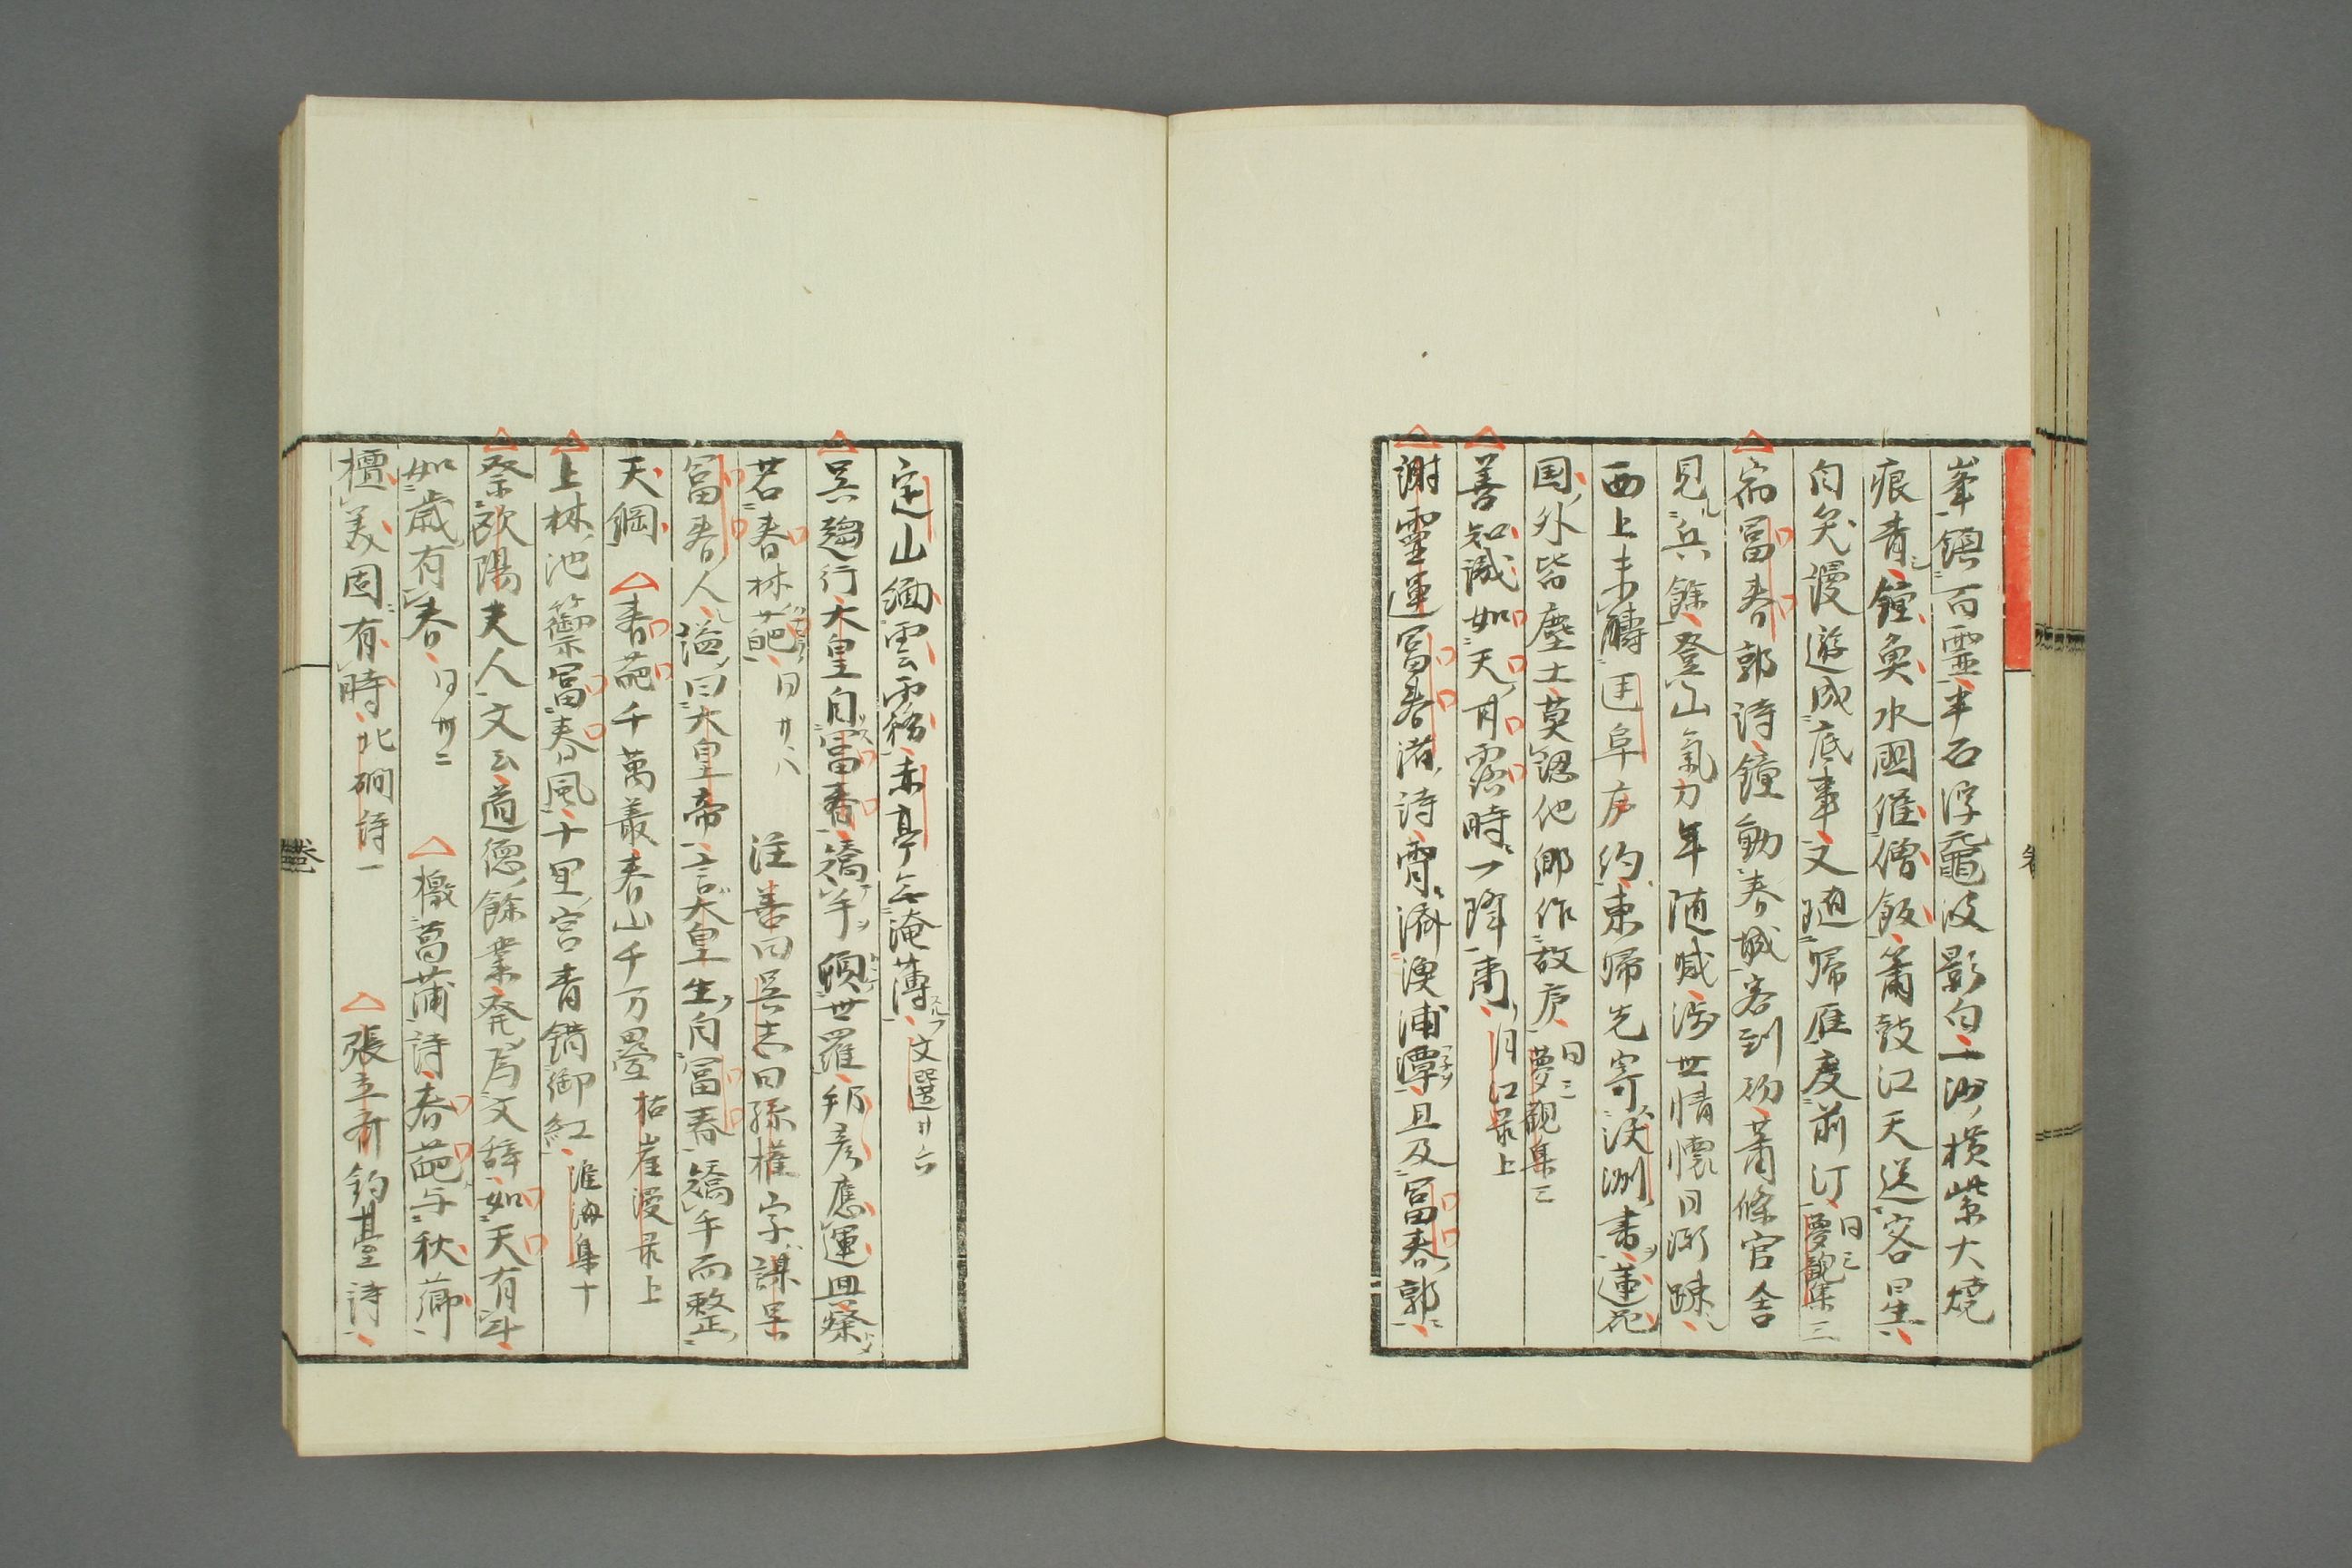 峯鎮百靈半石浮黿波影白一洲横紫大燒
痕青鐘魚水國催僧飯簫鼓江天送客星
自笑漫遊成底事又随歸雁度前汀 同三夢觀集三
宿富春郭詩鐘動春城客到初蕭條官舎
見兵餘登山氣力年随減濟世情懐日漸踈
西上未酬匡阜 約東歸先寄沃洲書蓮花
国外皆塵土莫認他郷作故 同三夢觀集三
善知識如天甘露時一降雨 月江录上
謝靈運富春渚詩宵済漁浦潭旦及富春郭
定山緬雲霧赤亭無淹薄 文選廿六
呉趨行大皇自富春矯手頓世羅邦彦應運興粲
若春林葩 同廿八 注善曰呉志曰孫權字謀呉
富春人謚曰大皇帝言大皇生自富春矯手而整
天綱 春葩千萬叢春山千万疊 枯崖漫录上
上林池籞富春風十里宮青錯御紅 淮海集十
祭欧陽夫人文云道德餘業発為文辞如天有斗
如歳有春 同卅二 檄菖蒲詩春葩与秋
檀美固有時 北磵詩一 張立斉釣臺詩
巻